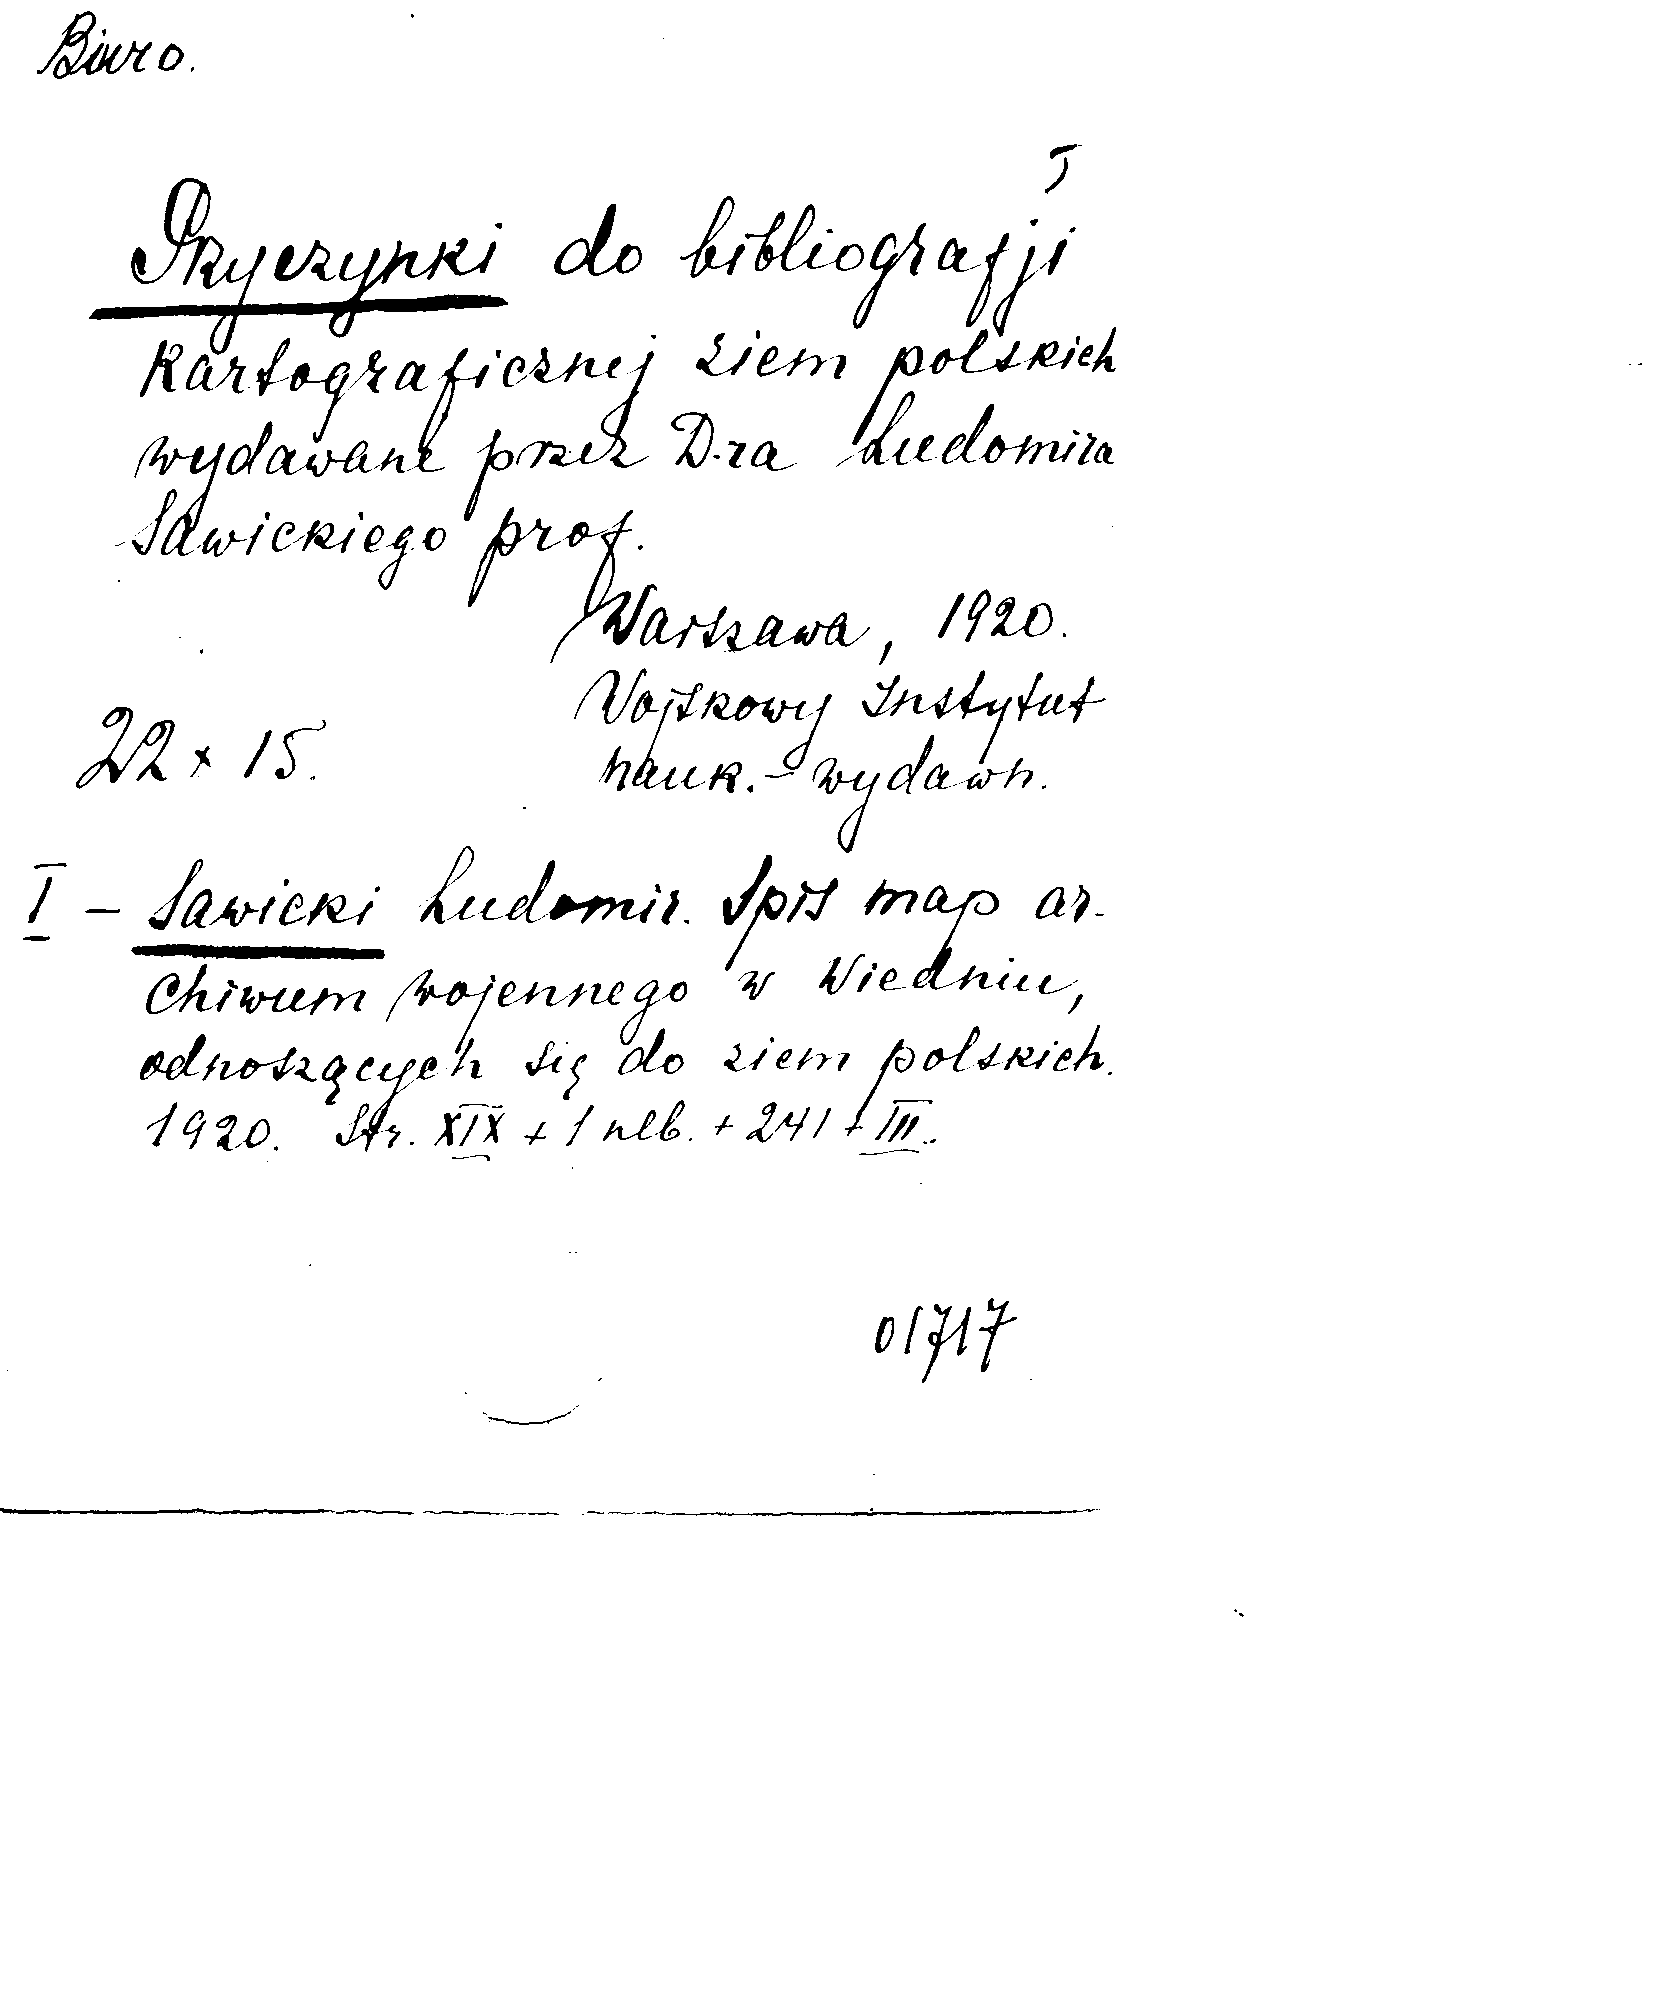 Biuro.
Przyczynki do bibliografji
kartograficznej ziem polskich
wydawane przez D-ra Ludomira
Sawickiego prof.
Warszawa, 1920.
Wojskowy Instytut
22 x 15.
nauk.-wydawn.
I - Sawicki Ludomir. Spis map ar-
chiwum wojennego w Wiedniu,
odnoszących się do ziem polskich.
1920. Str. XIX + 1 nlb. + 241 + III.
01717